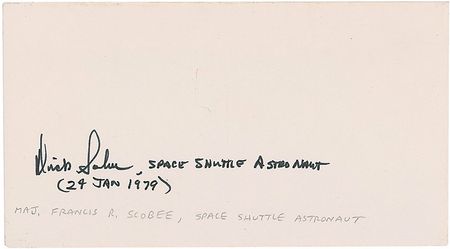 Dick Scobee, SPACE SHUTTLE ASTRONAUT
(24 JAN 1979)
MAJ. FRANCIS R. SCOBEE, SPACE SHUTTLE ASTRONAUT